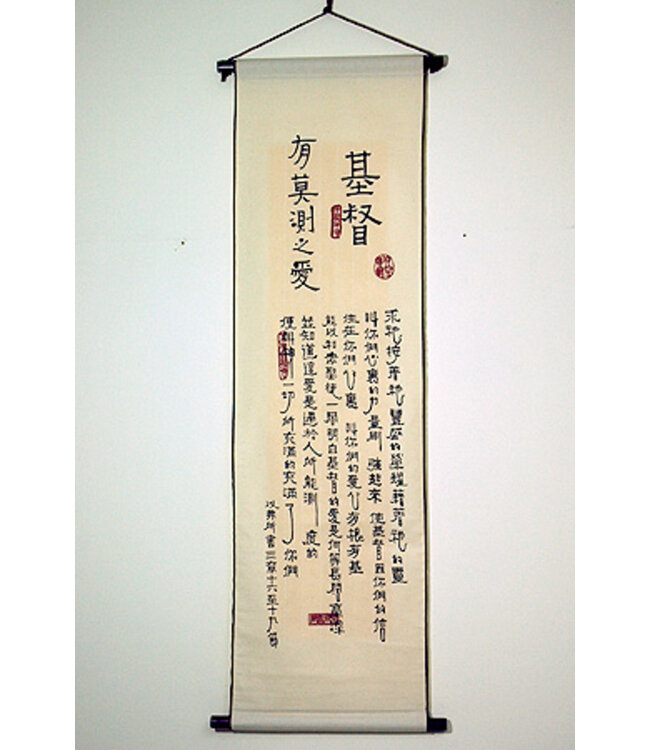 基督
有莫測之愛
求祂按著祂豐盛的榮耀藉著祂的靈
叫你們心裏的力量剛強起來使基督因你們的信
住在你們心裏叫你們的愛心有根有基
能以和眾聖徒一同明白基督的愛是何等長闊高深
並知道這愛是過於人所能測度的
便叫神一切所充滿的充滿了你們
以弗所書三章十六至十九節